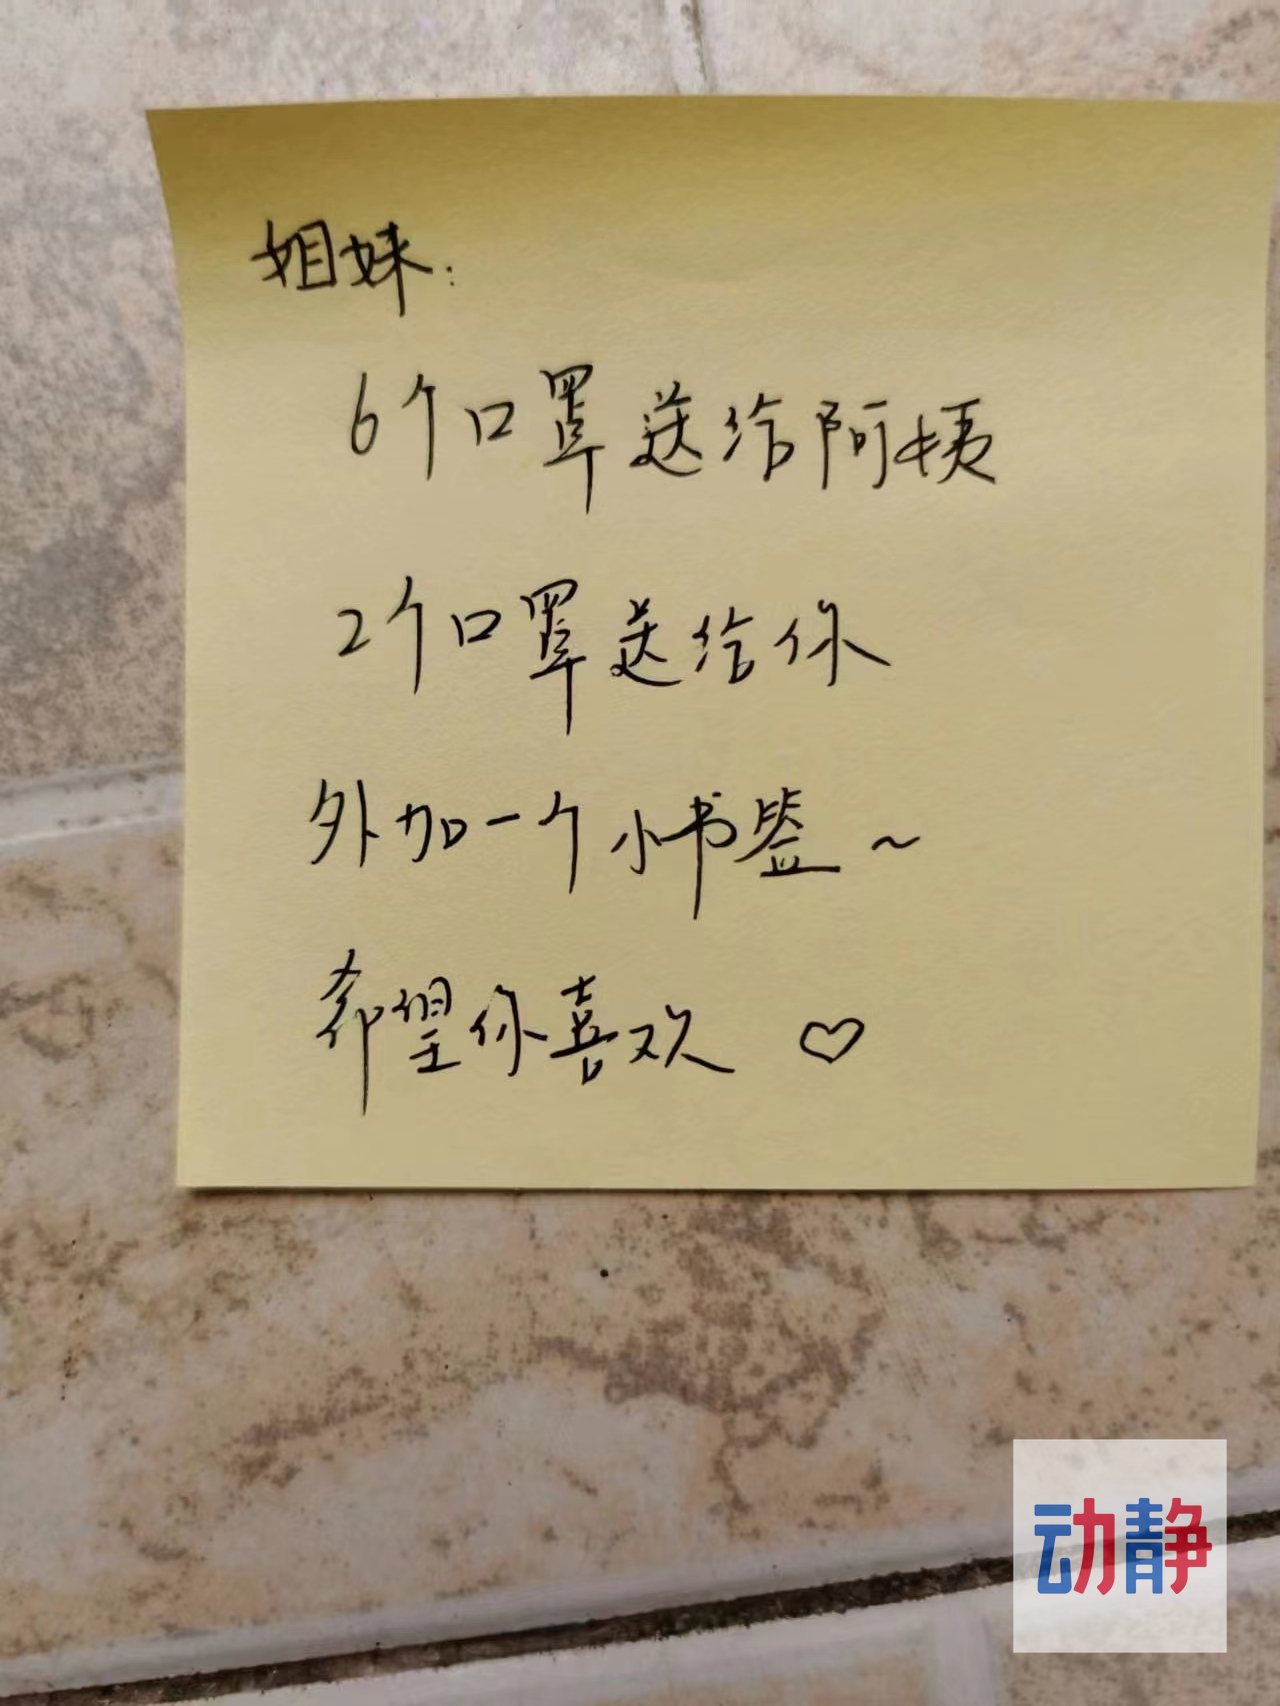 姐妹:
6个口罩送给阿姨
2个口罩送给你
外加一个小书签~
希望你喜欢 ♡
动静